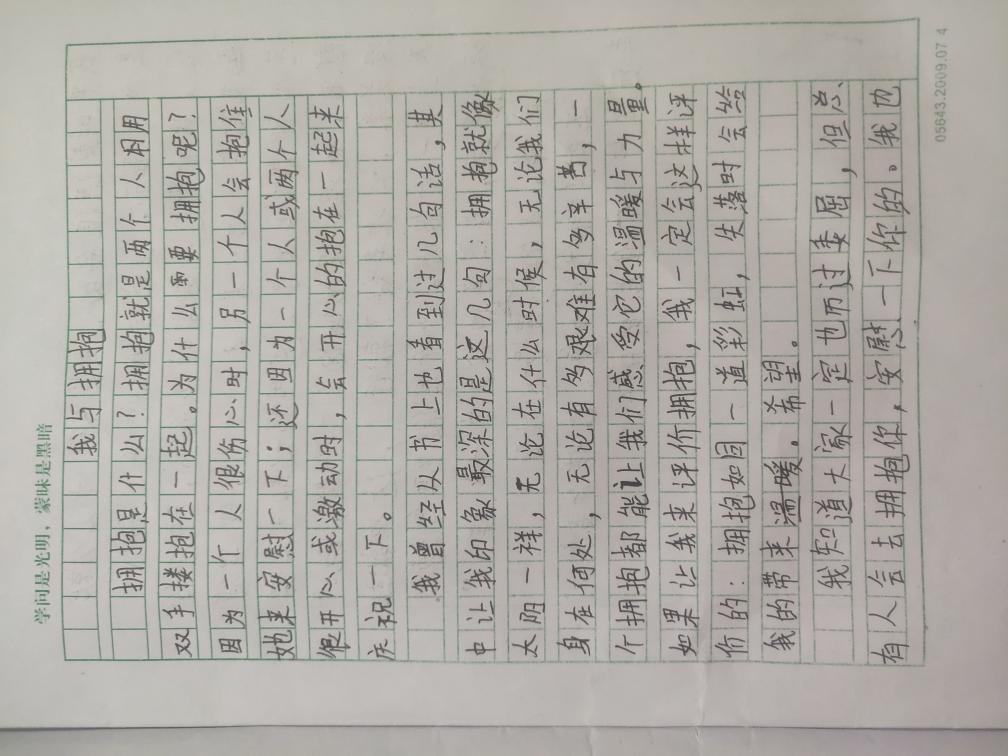 学问是光明，蒙昧是黑暗
我与拥抱
拥抱是什么？拥抱就是两个人相用
双手搂抱在一起。为什么需要拥抱呢？
因为一个人很伤心时，另一个人会抱住
她来安慰一下；还因为一个人或两个人
很开心或激动时，会开心的抱在一起来
庆祝一下。
我曾经从书上也看到过几句话，其
中让我印象最深的是这几句：拥抱就像
太阳一样，无论在什么时候，无论我们
身在何处，无论有多艰难有多辛苦，一
个拥抱都能让我们感受它的温暖与力量。
如果让我来评价拥抱，我一定会这样评
价的：拥抱如同一道彩虹，失落时会给
我的带来温暖。希望。
我知道大家一定也而过委屈，但总
有人会去拥抱你，安慰一下你的。我也
05643.2009.07 4